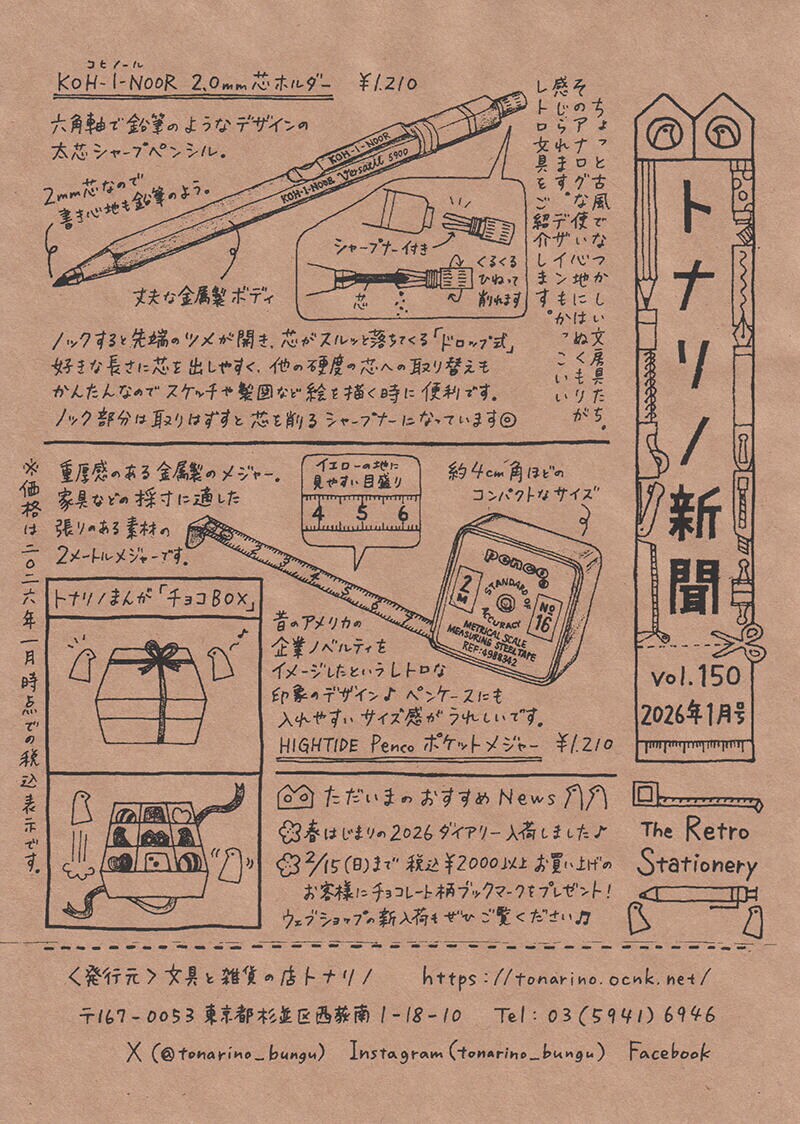 トナリノ新聞
vol.150
2026年1月号
The Retro
Stationery
ちょっと古風でなつかしい文房具たち。
そのアナログな使い心地にはぬくもりが
感じられます。デザインもかっこいい
レトロ文具をご紹介します。
コヒノール
KOH-I-NOOR 2.0mm芯ホルダー ¥1.210
六角軸で鉛筆のようなデザインの
太芯シャープペンシル。
2mm芯なので
書き心地も鉛筆のよう。
KOH-I-NOOR
KOH-I-NOOR Versatil 5900
丈夫な金属製ボディ
シャープナー付き
くるくる
ひねって
削れます
芯
ノックすると先端のツメが開き、芯がスルッと落ちてくる「ドロップ式」
好きな長さに芯を出しやすく、他の硬度の芯への取り替えも
かんたんなのでスケッチや製図など絵を描く時に便利です。
ノック部分は取りはずすと芯を削るシャープナーになっています◎
重厚感のある金属製のメジャー。
家具などの採寸に適した
張りのある素材の
2メートルメジャーです。
イエローの地に
見やすい目盛り
4 5 6
約4cm角ほどの
コンパクトなサイズ
2 3 4 5 6 7
penco
2
M
STANDARD OF
ACCURACY
No
16
METRICAL SCALE
MEASURING STEEL TAPE
REF:4988342
昔のアメリカの
企業ノベルティを
イメージしたというレトロな
印象のデザイン♪ ペンケースにも
入れやすいサイズ感がうれしいです。
HIGHTIDE Penco ポケットメジャー ¥1.210
トナリノまんが「チョコBOX」
ただいまのおすすめNews
春はじまりの2026ダイアリー入荷しました♪
2/15(日)まで 税込¥2000以上お買い上げの
お客様にチョコレート柄ブックマークをプレゼント!
ウェブショップの新入荷もぜひご覧ください♫
※価格は二〇二六年一月時点での税込表示です。
〈発行元〉文具と雑貨の店トナリノ https://tonarino.ocnk.net/
〒167-0053 東京都杉並区西荻南1-18-10 Tel:03(5941)6946
X (@tonarino_bungu) Instagram(tonarino_bungu) Facebook